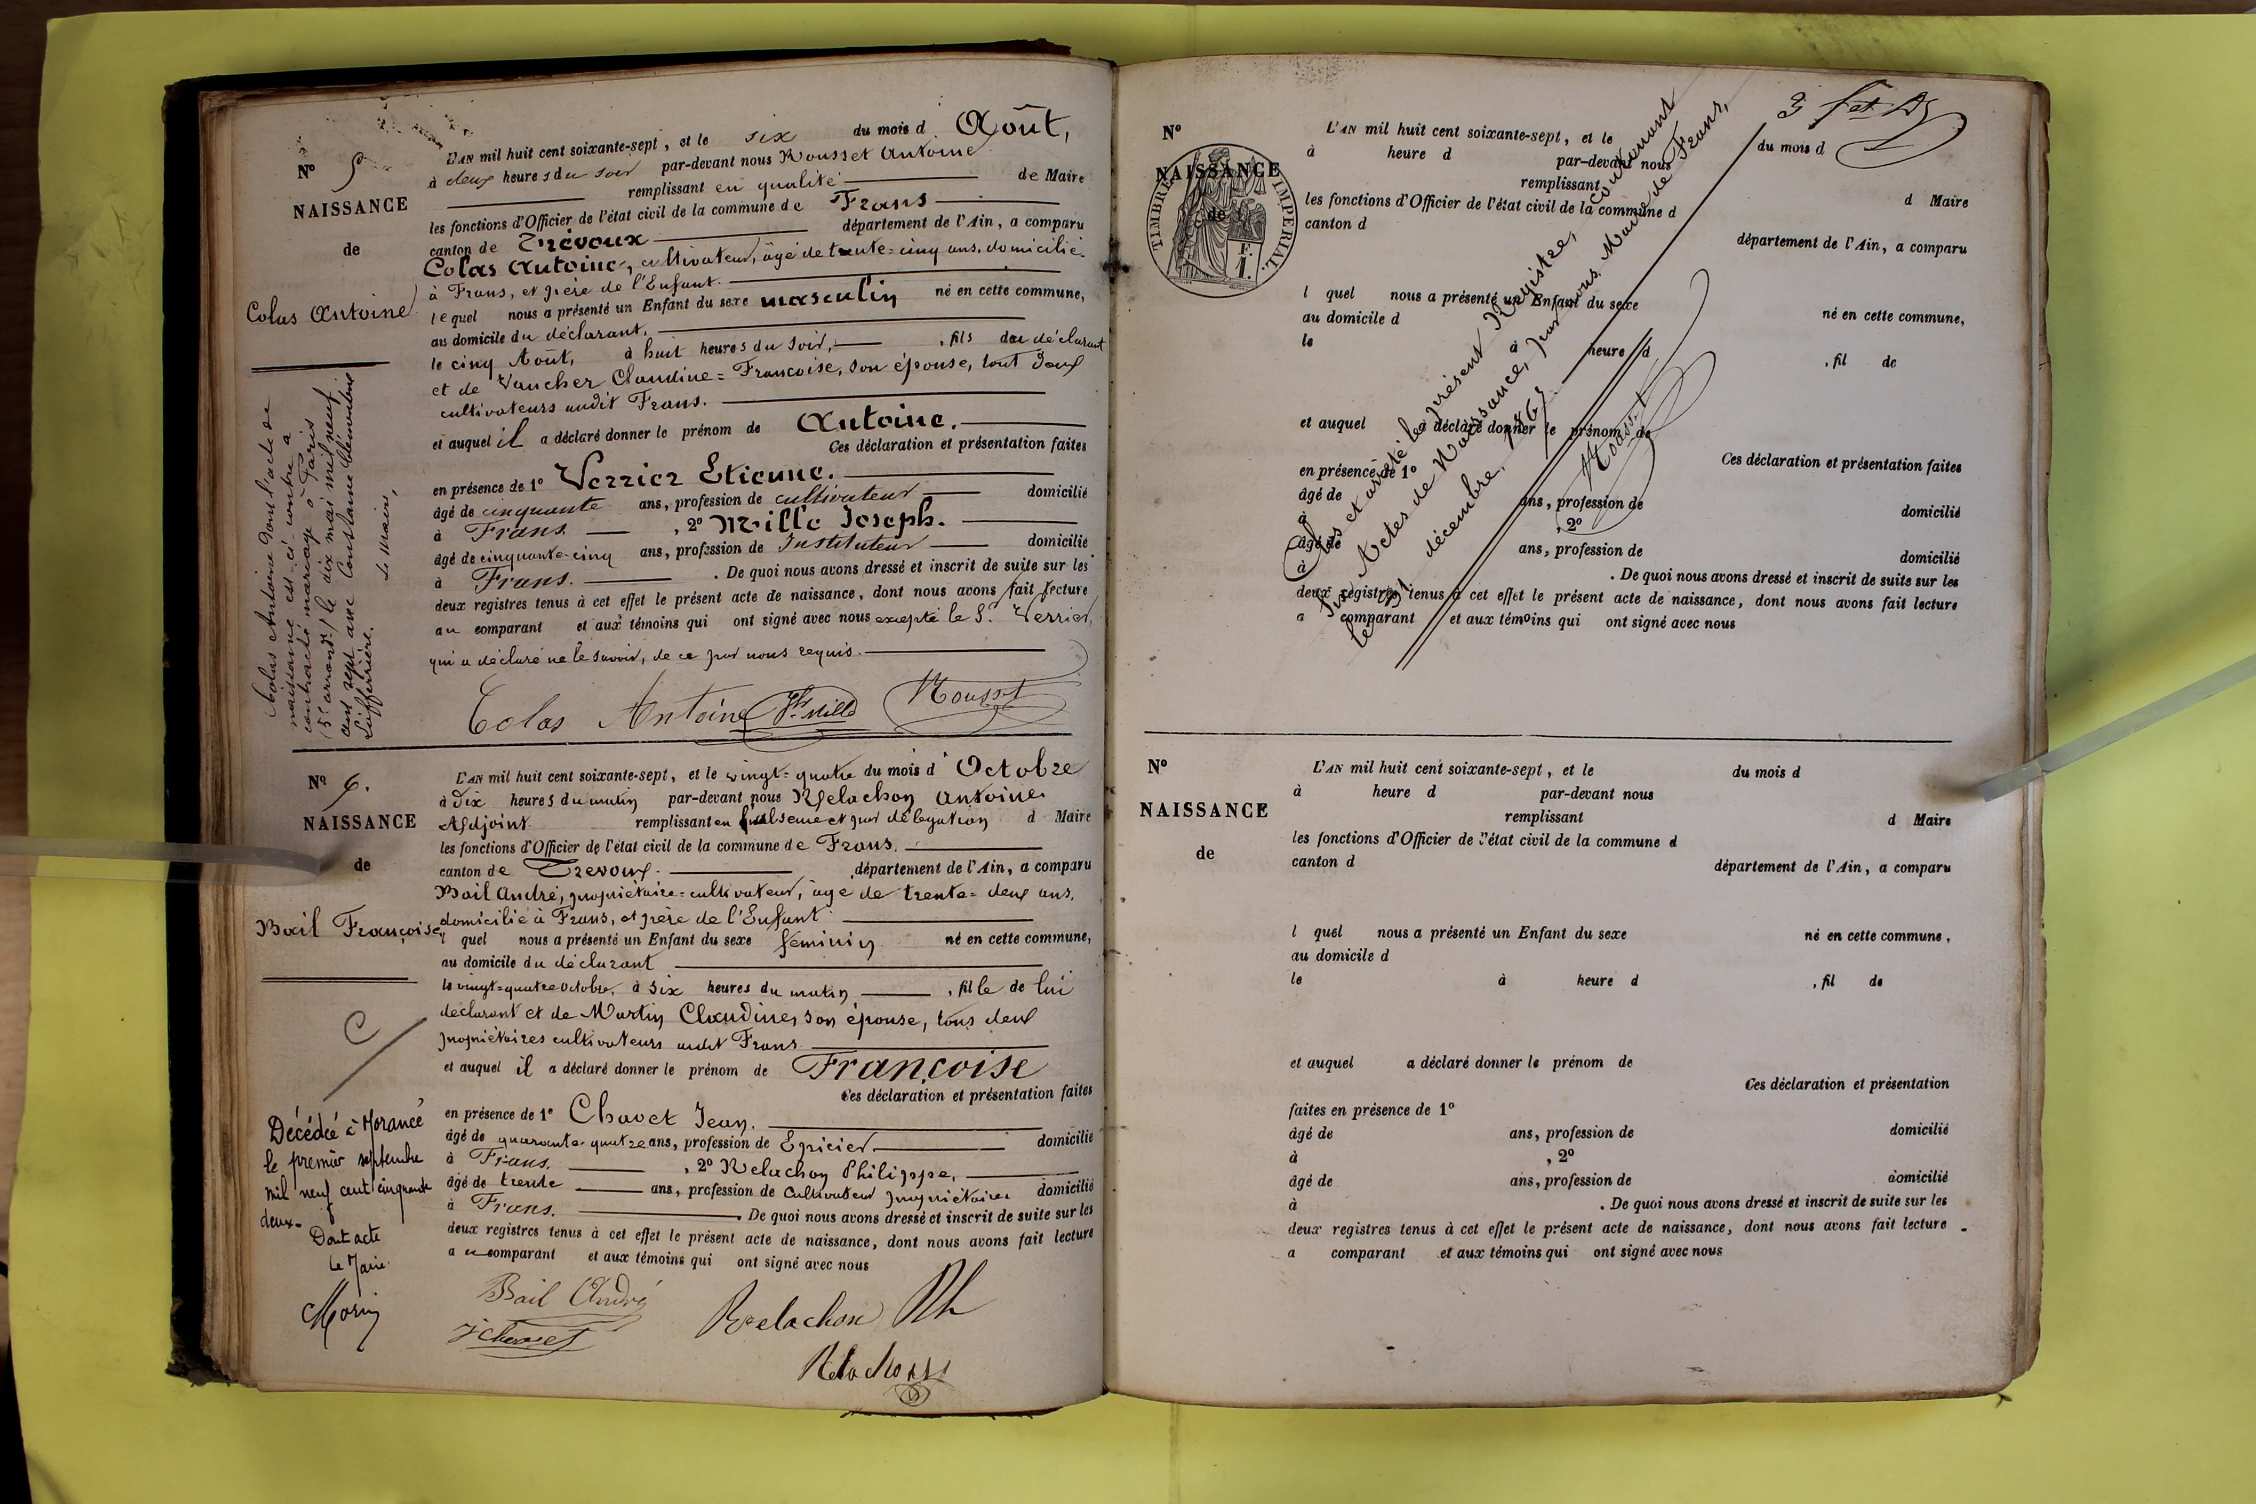 N° 5
NAISSANCE
de
Colas Antoine
L'AN mil huit cent soixante-sept, et le six du mois d Août,
à deux heures du soir par-devant nous Rousset Antoine
remplissant en qualité de Maire
les fonctions d'Officier de l'état civil de la commune de Frans
canton de Trévoux département de l'Ain, a comparu
Colas Antoine, cultivateur, âgé de trente-cinq ans, domicilié
à Frans, et père de l'Enfant.
lequel nous a présenté un Enfant du sexe masculin né en cette commune,
au domicile du déclarant,
le cinq Août, à huit heures du soir, , fils du déclarant
et de Vaucher Claudine=Françoise, son épouse, tout deux
cultivateurs audit Frans.
et auquel il a déclaré donner le prénom de Antoine.
Ces déclaration et présentation faites
en présence de 1° Verrier Etienne.
âgé de cinquante ans, profession de cultivateur domicilié
à Frans , 2° Mille Joseph.
âgé de cinquante-cinq ans, profession de Instituteur domicilié
à Frans. . De quoi nous avons dressé et inscrit de suite sur les
deux registres tenus à cet effet le présent acte de naissance, dont nous avons fait lecture
au comparant et aux témoins qui ont signé avec nous excepté le Sr. Verrier,
qui a déclaré ne le savoir, de ce par nous requis.
Colas Antoine Jh Mille Rousset
Colas Antoine dont l'acte de
naissance est ci-contre a
contracté mariage à Paris
(5e arrondt.) le dix mai mil neuf
cent sept avec Constance Clémentine
Le Maire,
N° 6.
NAISSANCE
de
Bail Françoise
L'AN mil huit cent soixante-sept, et le vingt=quatre du mois d'Octobre
à Dix heures du matin par-devant nous Relachon Antoine
Adjoint remplissant en et par délégation d Maire
les fonctions d'Officier de l'état civil de la commune de Frans.
canton de Trevoux. département de l'Ain, a comparu
Bail André, propriétaire=cultivateur, âgé de trente=deux ans,
domicilié à Frans, et père de l'Enfant
l quel nous a présenté un Enfant du sexe féminin né en cette commune,
au domicile du déclarant
le vingt=quatre octobre, à six heures du matin , fille de lui
déclarant et de Martin Claudine, son épouse, tous deux
propriétaires cultivateurs audit Frans
et auquel il a déclaré donner le prénom de Françoise
Ces déclaration et présentation faites
en présence de 1° Chavet Jean,
âgé de quarante-quatre ans, profession de Epicier domicilié
à Frans. , 2° Relachon Philippe,
âgé de trente ans, profession de Cultivateur propriétaire domicilié
à Frans. . De quoi nous avons dressé et inscrit de suite sur les
deux registres tenus à cet effet le présent acte de naissance, dont nous avons fait lecture
au comparant et aux témoins qui ont signé avec nous
Bail André
J Chavet
Relachon Ph
Relachon
Décédée à Morancé
le premier septembre
mil neuf cent cinquante
deux-
Dont acte
Le Maire
Morin
3 f et D
N°
NAISSANCE
de
TIMBRE IMPERIAL
F.
1.
L'AN mil huit cent soixante-sept, et le du mois d
à heure d par-devant nous
remplissant d Maire
les fonctions d'Officier de l'état civil de la commune d
canton d département de l'Ain, a comparu
l quel nous a présenté un Enfant du sexe né en cette commune,
au domicile d
le à heure d , fil de
et auquel a déclaré donner le prénom de
Ces déclaration et présentation faites
en présence de 1°
âgé de ans, profession de domicilié
à , 2°
âgé de ans, profession de domicilié
à . De quoi nous avons dressé et inscrit de suite sur les
deux registres tenus à cet effet le présent acte de naissance, dont nous avons fait lecture
a comparant et aux témoins qui ont signé avec nous
Clos et arrêté le présent Registre, contenant
Six Actes de Naissance, par nous, Maire de Frans,
le 31 décembre, 1867
Rousset
N°
NAISSANCE
de
L'AN mil huit cent soixante-sept, et le du mois d
à heure d par-devant nous
remplissant d Maire
les fonctions d'Officier de l'état civil de la commune d
canton d département de l'Ain, a comparu
l quel nous a présenté un Enfant du sexe né en cette commune,
au domicile d
le à heure d , fil de
et auquel a déclaré donner le prénom de
Ces déclaration et présentation
faites en présence de 1°
âgé de ans, profession de domicilié
à , 2°
âgé de ans, profession de domicilié
à . De quoi nous avons dressé et inscrit de suite sur les
deux registres tenus à cet effet le présent acte de naissance, dont nous avons fait lecture
a comparant et aux témoins qui ont signé avec nous